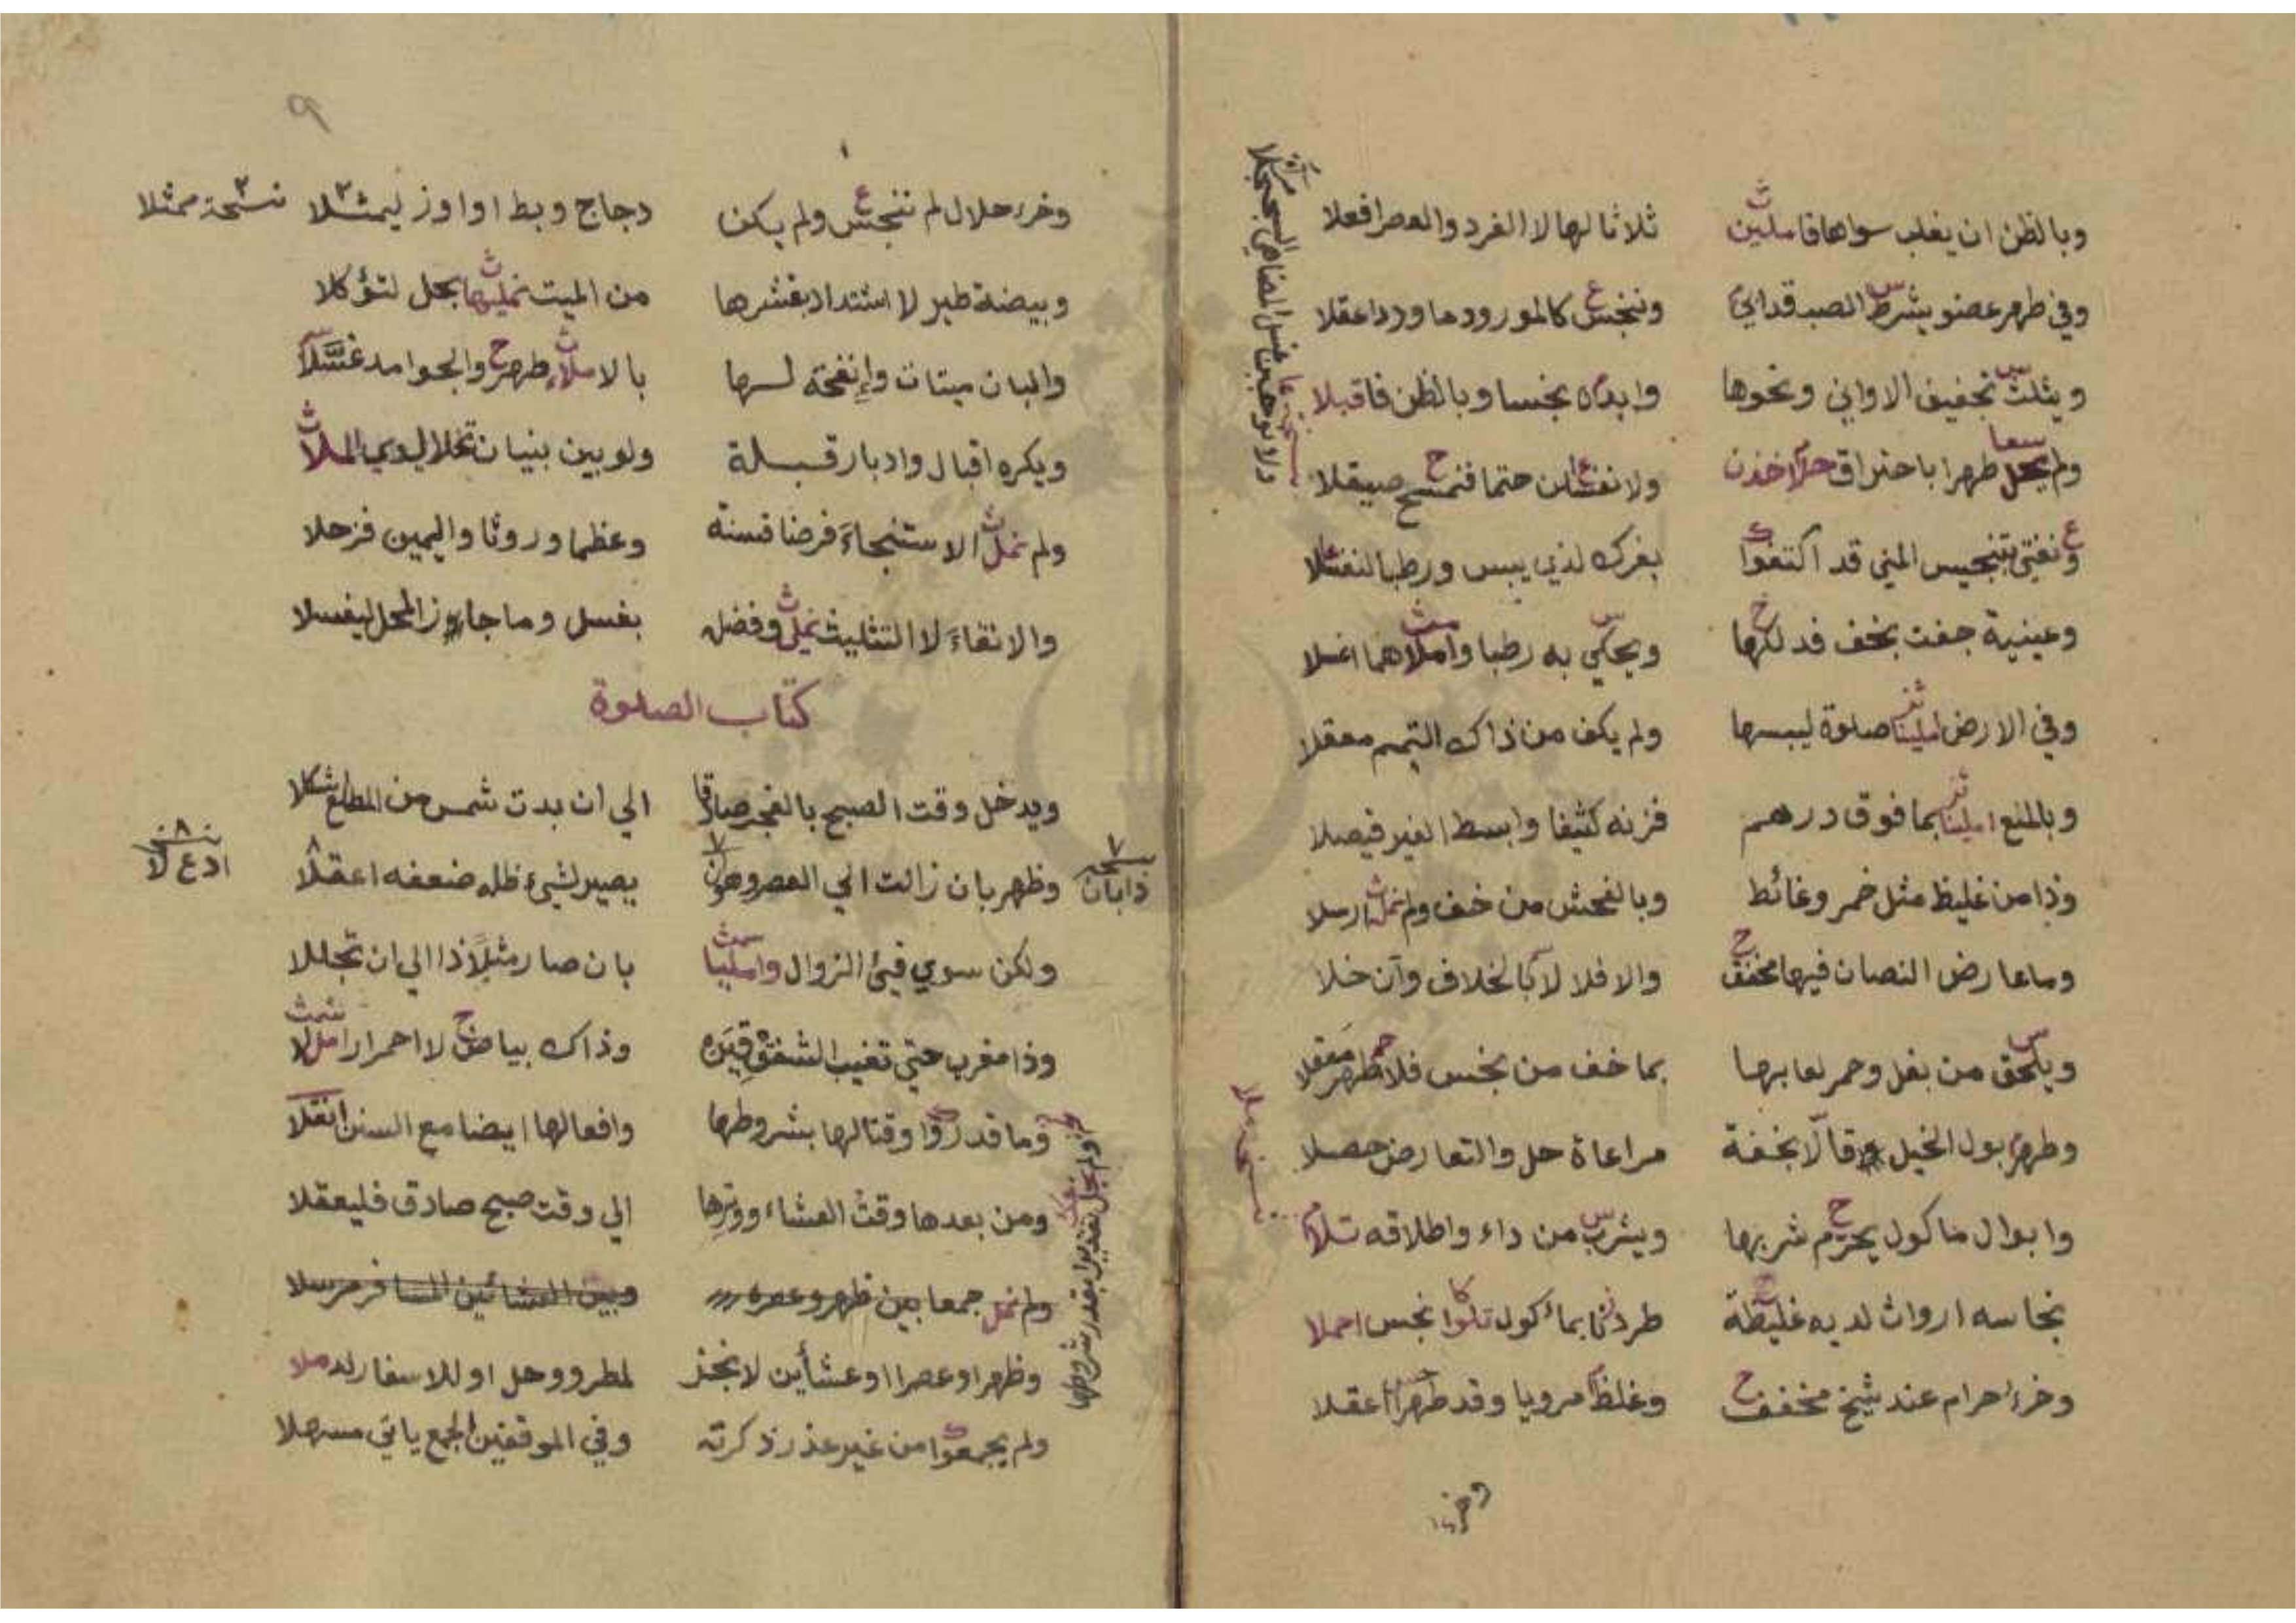 وبالظن ان يغلب سواها فاملين ثلاثا لها لا الفرد والعصر افعلا
وفي طهر عضو يشرط الصب قدابي وننجس كالمورود ما وردا عقلا
ويثلث تجفيف الاواني ونحوها وابداه نجسا وبالظن فاقبلا
ولم يحل طهرا باحتراق خذن ولا نغسلن حتما فنمسح صيقلا
ونفتي بتنجيس المني قد اكتفوا بفرك لذي يبس ورطبا لنغسلا
وعينية جفت بخف فدلكها ويحكي به رطبا واملاهما اغسلا
وفي الارض املينا صلوة ليبسها ولم يكف من ذاك التيمم معقلا
وبالمنع املينا بما فوق درهم فزنه كثيفا وابسط الغير فيصلا
وذا من غليظ مثل خمر وغائط وبالفحش من خف ولم نمل ارسلا
وما عارض النصان فيها مخفف والا فلا لا بالخلاف وآن خلا
ويلحق من بغل وحمر لعابها بما خف من نجس فلا طهر معقلا
وطهر بول الخيل قالا بخفة مراعاة حل والتعارض حصلا
وابوال ماكول يحرم شربها ويشرب من داء واطلاقه تلا
نجاسه ارواث لديه غليظة طردنا بماكول تلوا نجس احملا
وخرء حرام عند شيخ مخفف وغلظ مرويا وقد طهرا اعقلا
٩
وخرء حلال لم ننجس ولم يكن دجاج وبط او اوز ليمثلا
نسخة ممثلا
وبيضة طير لا اشتداد بقشرها من الميت نمليها بحل لتؤكلا
والبان ميتات وإنفحة لها بالاملاء طهر والجوامد غسلا
ويكره اقبال وادبار قبلة ولو بين بنيان تخلا لدي الملا
ولم نمل الاستنجاء فرضا فسنه وعظما وروثا واليمين فزحلا
والانقاء لا التثليث نملي وفضله بغسل وما جاوز المحل ليغسلا
كتاب الصلوة
ويدخل وقت الصبح بالفجر صادقا الي ان بدت شمس من المطلع شكلا
وظهر بان زالت الي العصر وهو ان يصير لشيء ظله ضعفه اعقلا
نسخه ذابان
ادع لا
ولكن سوي فيئ الزوال وامليا بان صار مثلا ذا الي ان تجللا
وذا مغرب حتي تغيب الشفق قينه وذاك بياض لا احمرار املا
وما قدروا وقتا لها بشروطها وافعالها ايضا مع السنن انقلا
ومن بعدها وقت العشاء ووترها الي وقت صبح صادق فليعقلا
ولم نمل جمعا بين ظهر وعصره وبين العشائين المسافر مرسلا
وظهرا وعصرا او عشأين لا نجز لمطر ووحل او للاسفار لد ملا
ولم يجمعوا من غير عذر ذكرته وفي الموقفين الجمع ياتي مسهلا